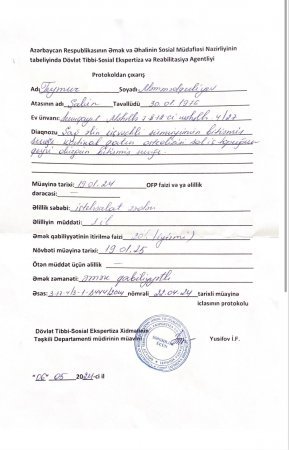 Azərbaycan Respublikasının Əmək və Əhalinin Sosial Müdafiəsi Nazirliyinin
tabeliyində Dövlət Tibbi-Sosial Ekspertiza və Reabilitasiya Agentliyi
Protokoldan çıxarış
Adı Teymur Soyadı Məmmədquliyev
Atasının adı Şakir Təvəllüdü 30.01.1976
Ev ünvanı: Sumqayıt 4/27
Diaqnozu Sağ əlin sümüyünün bitişmiş
bitişmiş
Müayinə tarixi: 19.01.24 OFP faizi və ya əlillik
dərəcəsi: —
Əlillik səbəbi: istehsalat
Əlilliyin müddəti: 1 il
Əmək qabiliyyətinin itirilmə faizi 20 (iyirmi)
Növbəti müayinə tarixi: 19.01.25
Ötən müddət üçün əlillik —
Əmək zəmanəti: əmək qabiliyyətli
Əsas: nömrəli 22.04.24 tarixli müayinə
iclasının protokolu
Dövlət Tibbi-Sosial Ekspertiza Xidmətinin
Təşkili Departamenti müdirinin müavini Yusifov İ.F.
"06" 05 2024-ci il